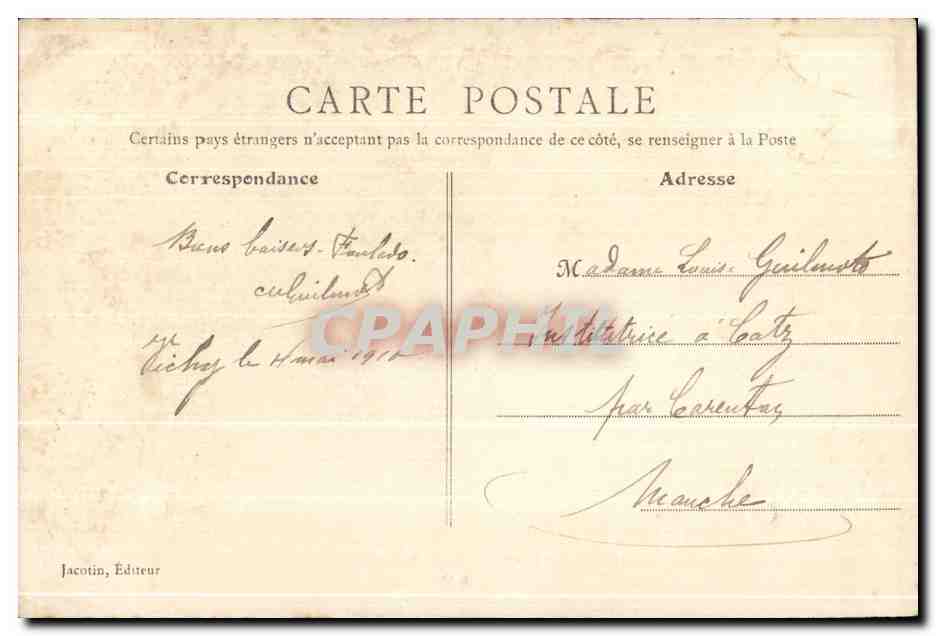 CARTE POSTALE
Certains pays étrangers n'acceptant pas la correspondance de ce côté, se renseigner à la Poste
Correspondance
Adresse
Bons baisers.
Guilmoto
Vichy le 4 mai 1910
Madame Louis Guilmoto
Institutrice à Catz
par Carentan
Manche
CPAPHIL
Jacotin, Éditeur